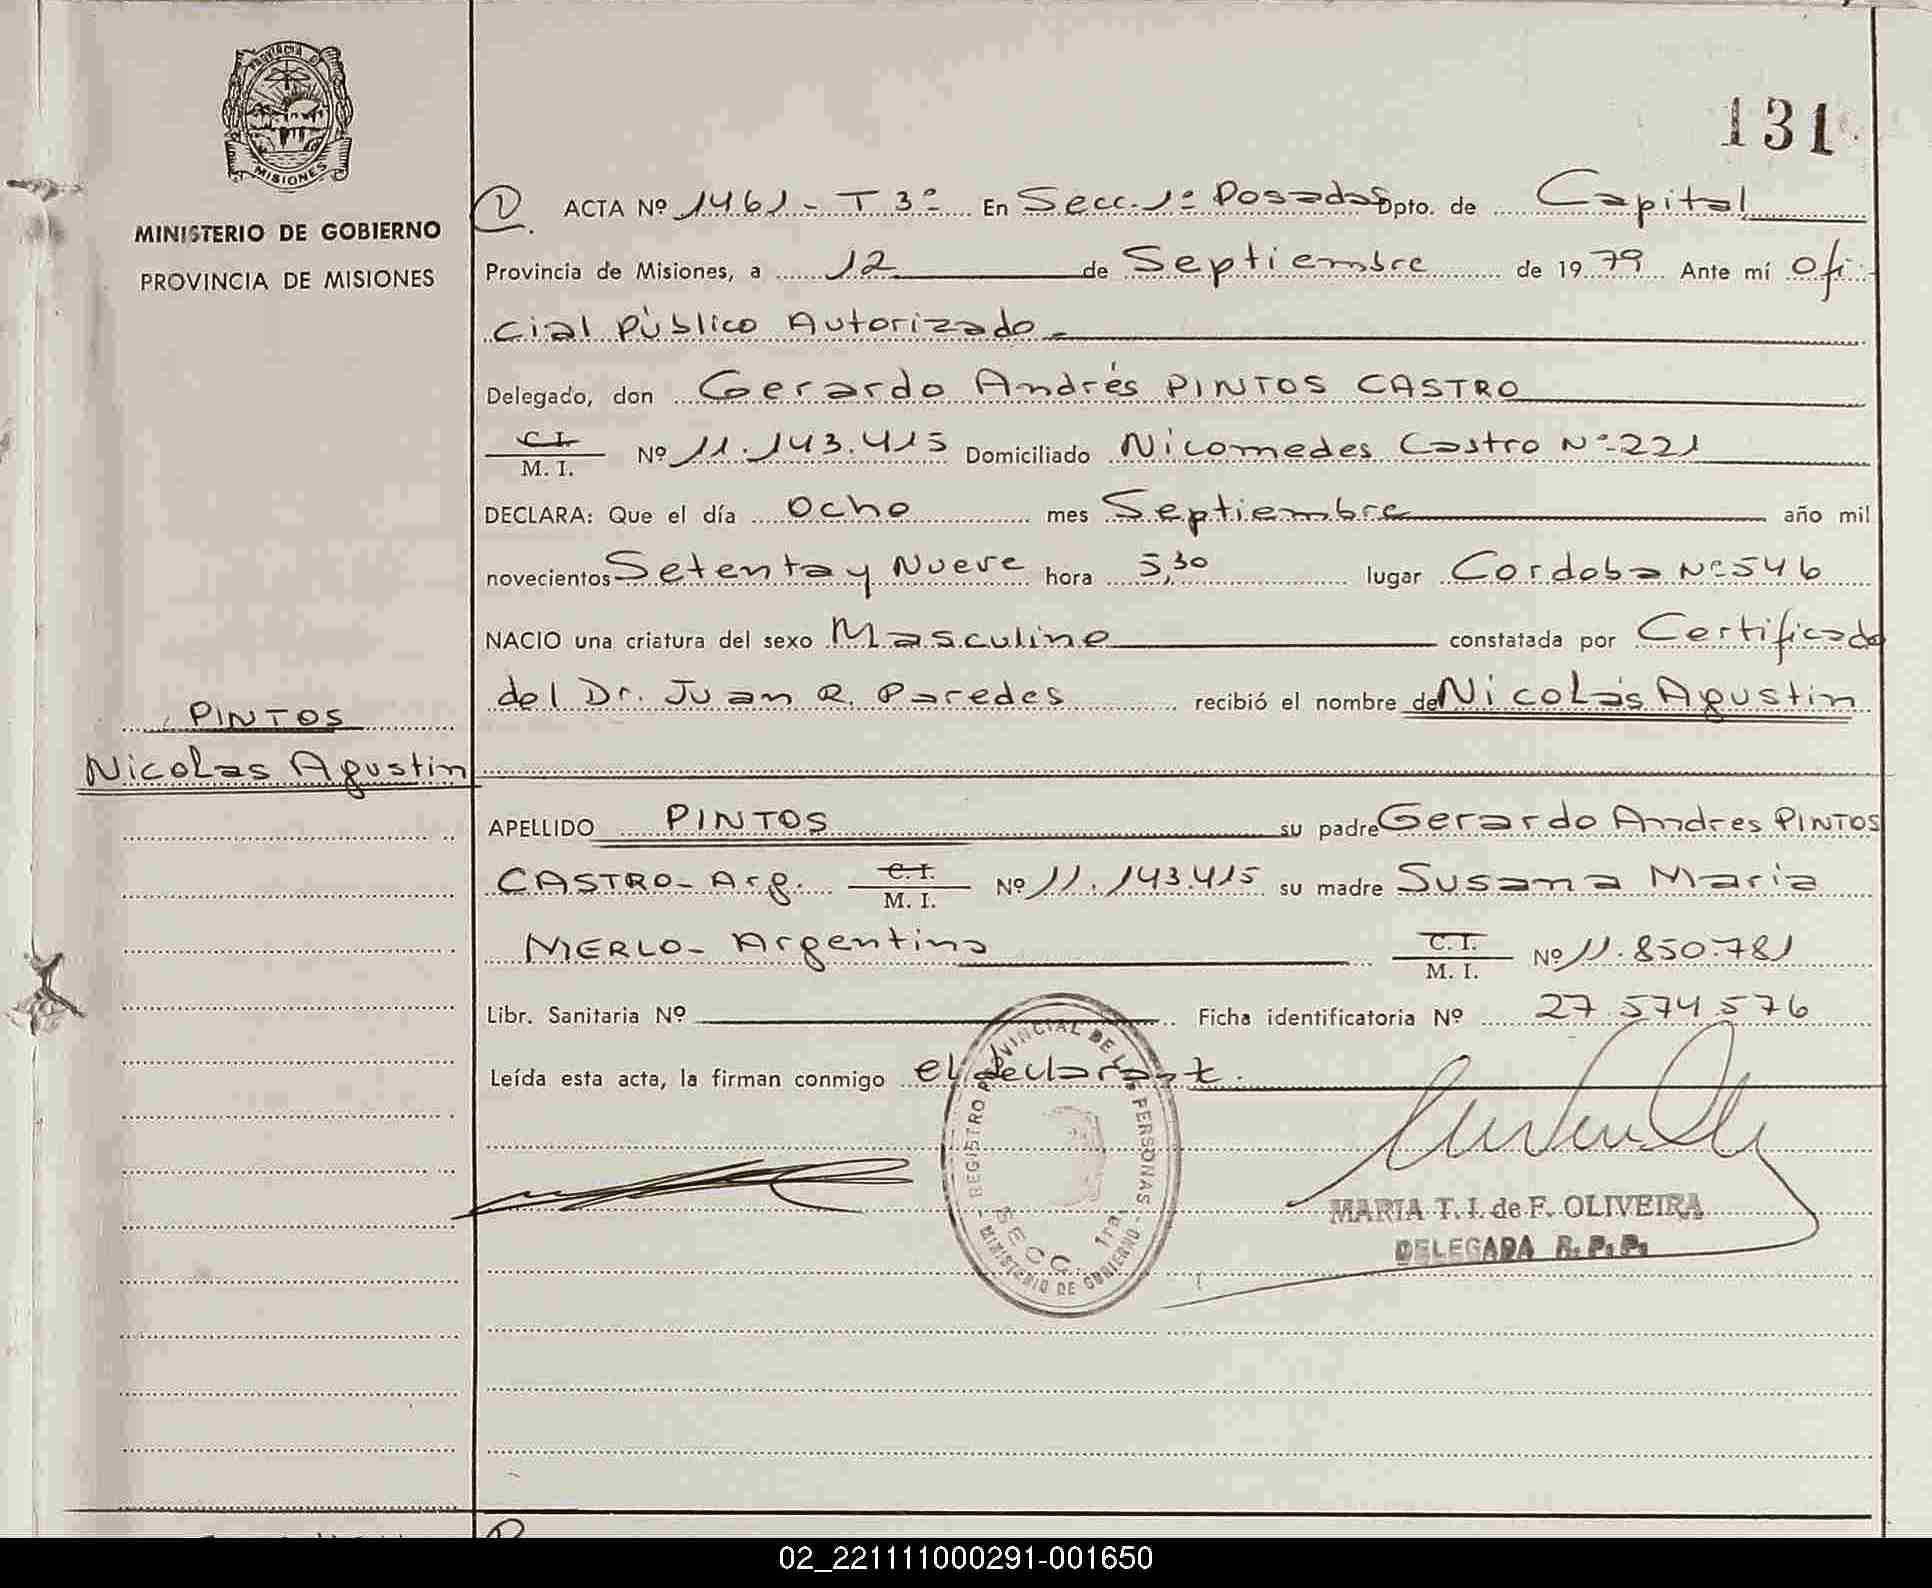 PROVINCIA DE
MISIONES
MINISTERIO DE GOBIERNO
PROVINCIA DE MISIONES
PINTOS
Nicolas Agustin
131
D. ACTA Nº 1461 - T 3º En Secc. 1º Posadas Dpto. de Capital
Provincia de Misiones, a 12 de Septiembre de 1979 Ante mí Ofi
cial Público Autorizado
Delegado, don Gerardo Andrés PINTOS CASTRO
C.I. M. I. Nº 11.143.415 Domiciliado Nicomedes Castro Nº 221
DECLARA: Que el día ocho mes Septiembre año mil
novecientos Setenta y Nueve hora 5,30 lugar Cordoba Nº 546
NACIO una criatura del sexo Masculino constatada por Certificado
del Dr. Juan R. Paredes recibió el nombre de Nicolás Agustin
APELLIDO PINTOS su padre Gerardo Andres PINTOS
CASTRO - Arg. C.I. M. I. Nº 11.143.415 su madre Susana Maria
MERLO - Argentina C.I. M. I. Nº 11.850.781
Libr. Sanitaria Nº Ficha identificatoria Nº 27.574.576
Leída esta acta, la firman conmigo el declarante.
REGISTRO PROVINCIAL DE LAS PERSONAS
SECC. 1ra.
MINISTERIO DE GOBIERNO
MARIA T. I. de F. OLIVEIRA
DELEGADA R. P. P.
02_221111000291-001650